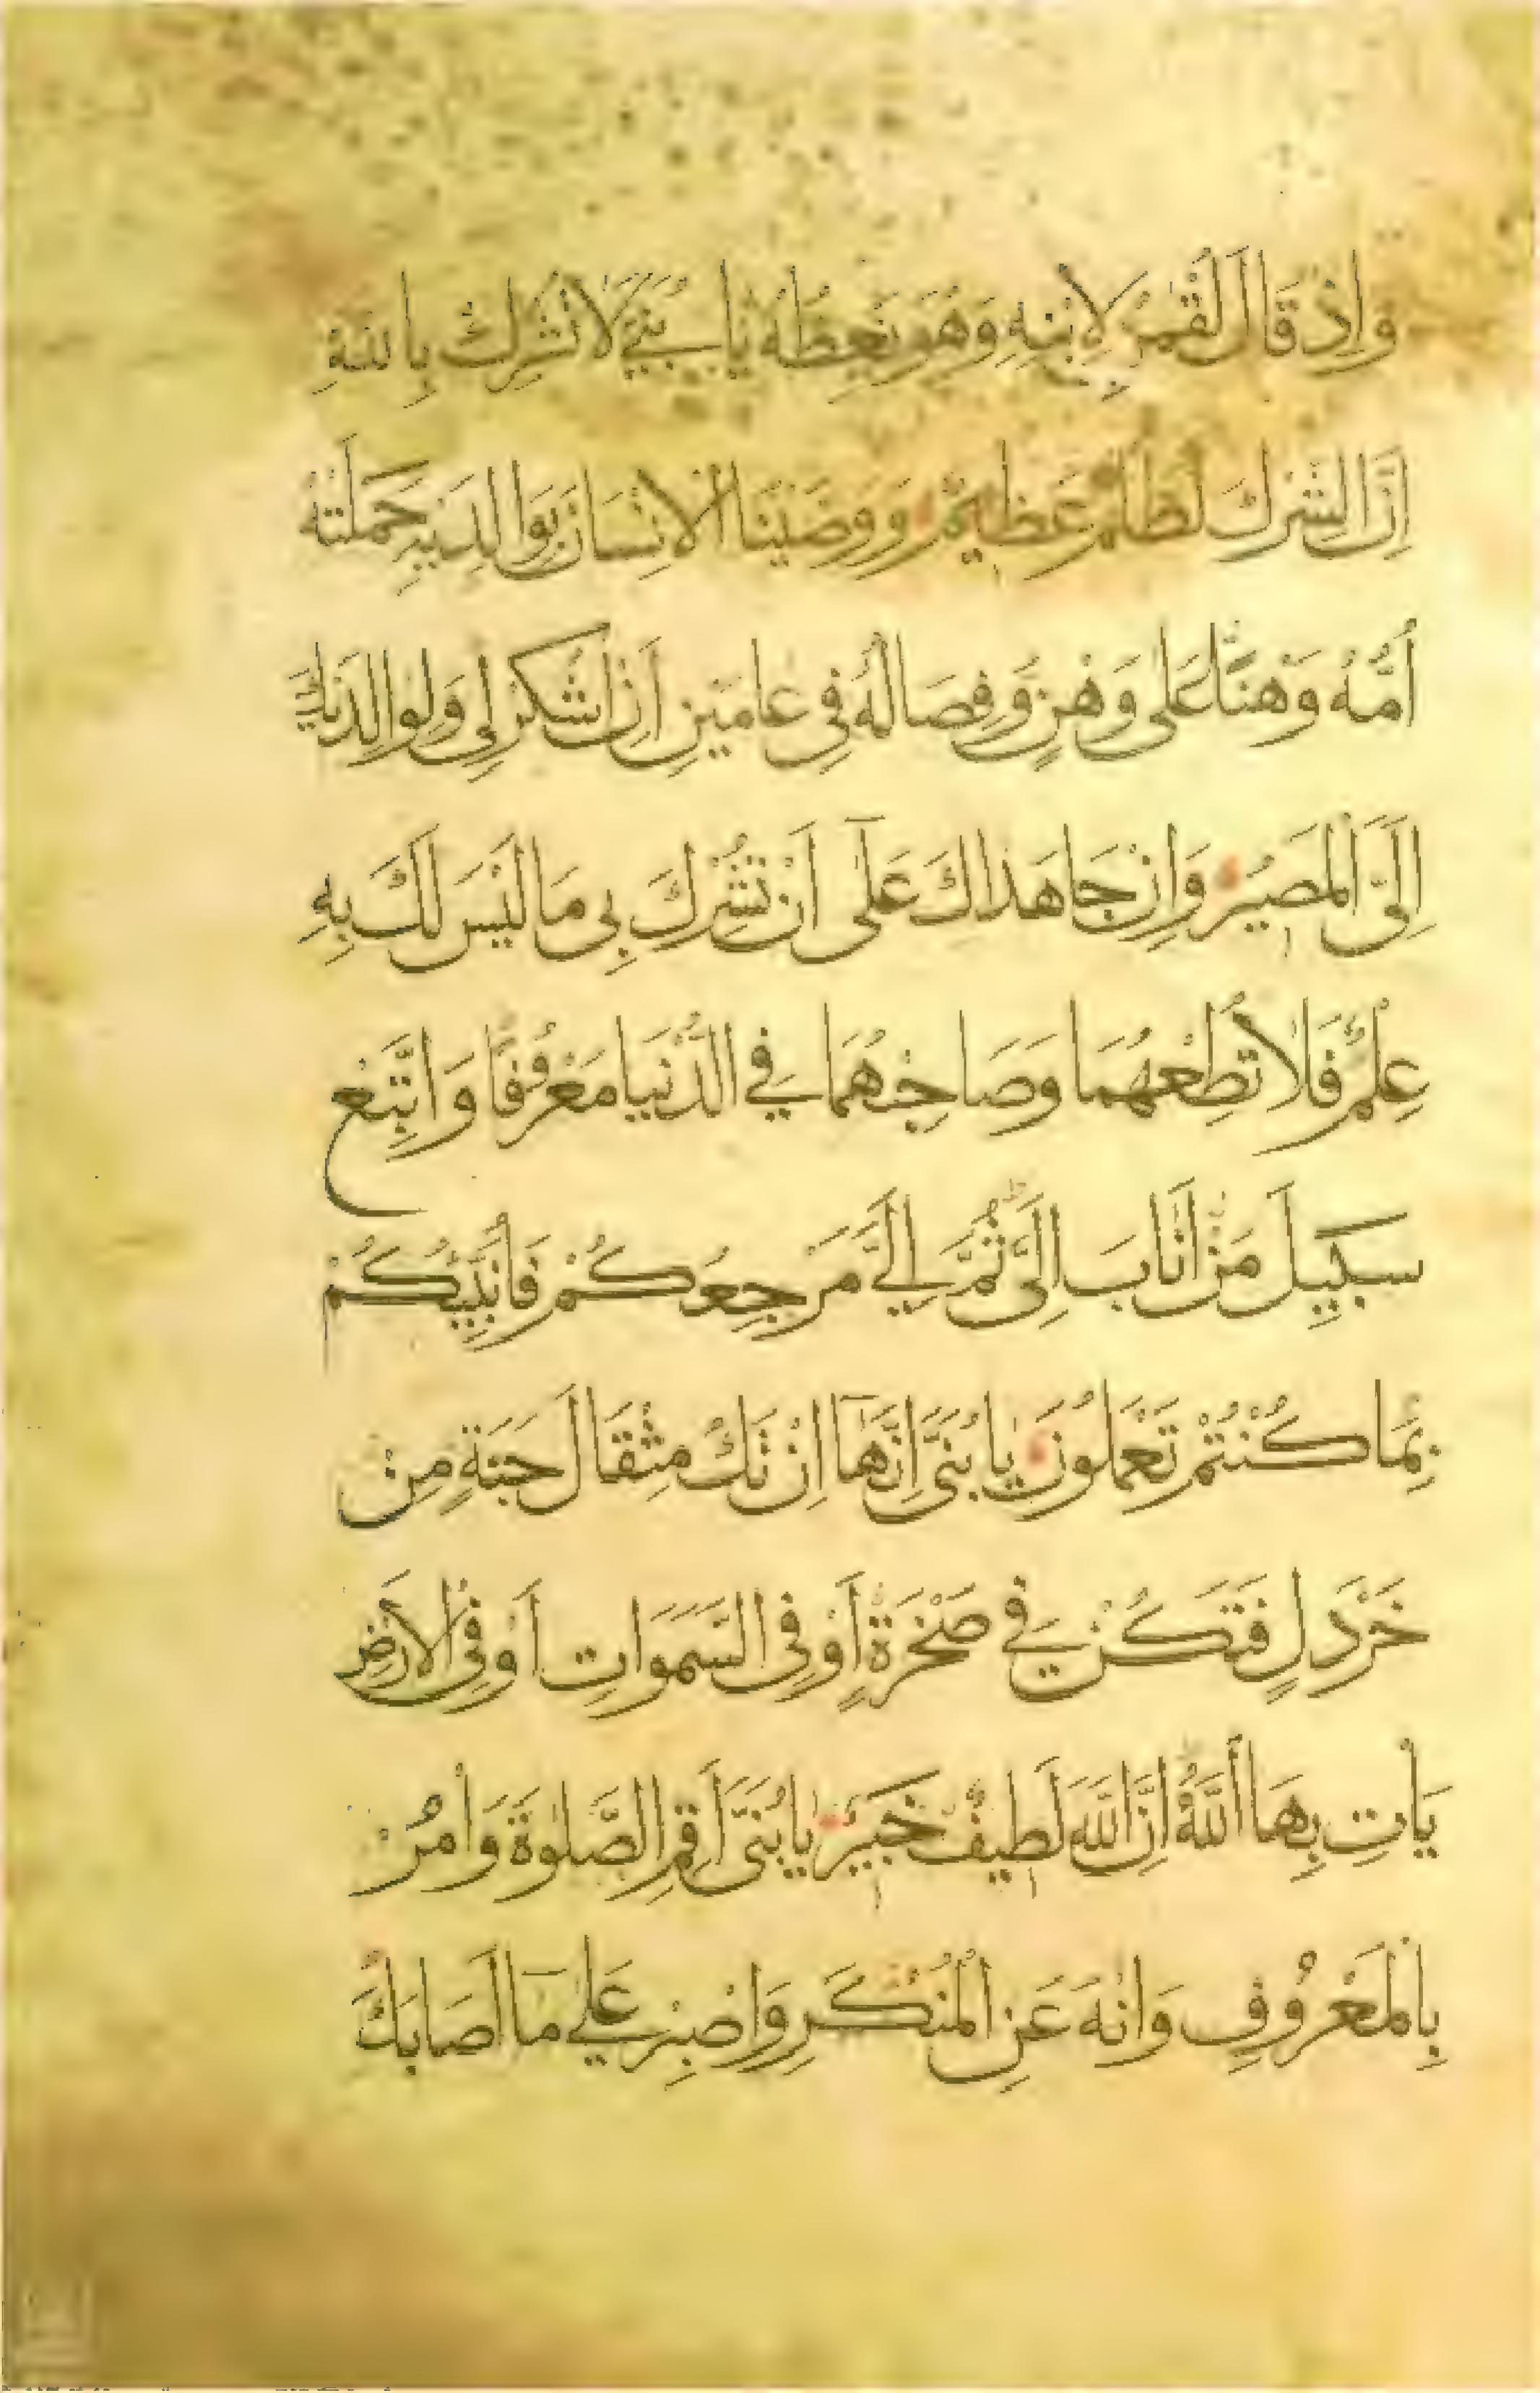 وَاِذْ قَالَ لُقْمٰنُ لِاِبْنِهِ وَهُوَ يَعِظُهُ يَابُنَيَّ لَا تُشْرِكْ بِاللهِ
اِنَّ الشِّرْكَ لَظُلْمٌ عَظِيْمٌ وَوَصَّيْنَا الْاِنْسَانَ بِوَالِدَيْهِ حَمَلَتْهُ
اُمُّهُ وَهْنًا عَلٰى وَهْنٍ وَفِصَالُهُ فِى عَامَيْنِ اَنِ اشْكُرْ لِى وَلِوَالِدَيْكَ
اِلَىَّ الْمَصِيْرُ وَاِنْ جَاهَدَاكَ عَلٰٓى اَنْ تُشْرِكَ بِى مَا لَيْسَ لَكَ بِهِ
عِلْمٌ فَلَا تُطِعْهُمَا وَصَاحِبْهُمَا فِي الدُّنْيَا مَعْرُوفًا وَاتَّبِعْ
سَبِيْلَ مَنْ اَنَابَ اِلَىَّ ثُمَّ اِلَيَّ مَرْجِعُكُمْ فَاُنَبِّئُكُمْ
بِمَا كُنْتُمْ تَعْمَلُوْنَ يَا بُنَىَّ اِنَّهَآ اِنْ تَكُ مِثْقَالَ حَبَّةٍ مِنْ
خَرْدَلٍ فَتَكُنْ فِي صَخْرَةٍ اَوْ فِى السَّمَوَاتِ اَوْ فِى الْاَرْضِ
يَأْتِ بِهَا اللّٰهُ اِنَّ اللّٰهَ لَطِيْفٌ خَبِيْرٌ يَا بُنَىَّ اَقِمِ الصَّلٰوةَ وَأْمُرْ
بِالْمَعْرُوْفِ وَانْهَ عَنِ الْمُنْكَرِ وَاصْبِرْ عَلٰي مَآ اَصَابَكَ